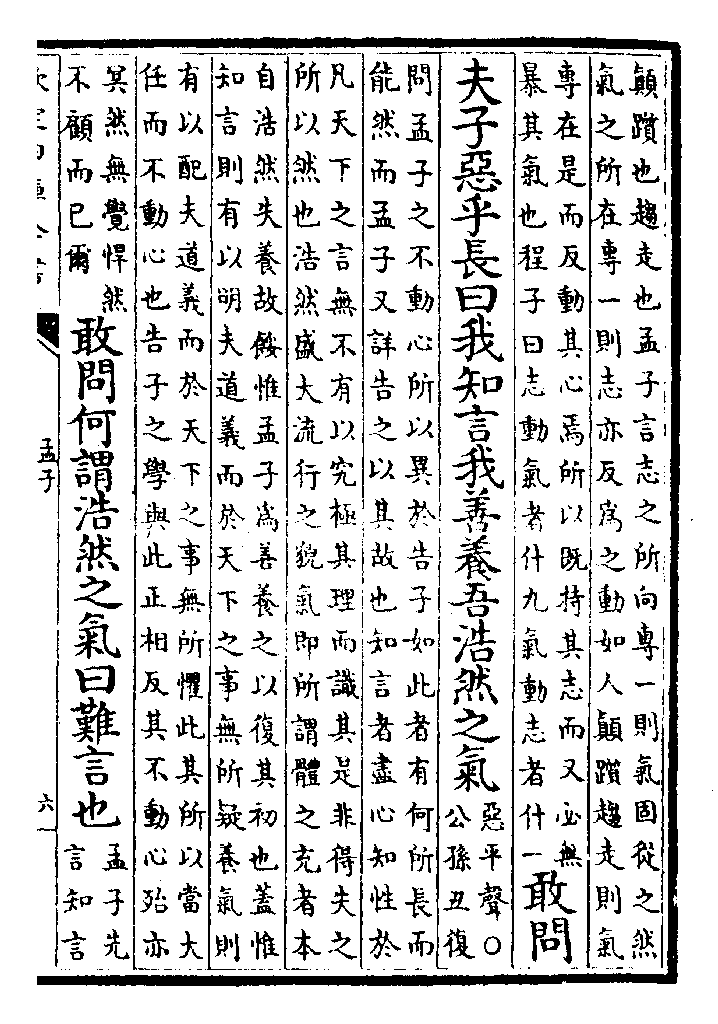 顛躓也趨走也孟子言志之所向専一則氣固從之然
氣之所在専一則志亦反為之動如人顛躓趨走則氣
専在是而反動其心焉所以既持其志而又必無
暴其氣也程子曰志動氣者什九氣動志者什一
敢問
夫子惡乎長曰我知言我善養吾浩然之氣
惡平聲○
公孫丑復
問孟子之不動心所以異於告子如此者有何所長而
能然而孟子又詳告之以其故也知言者盡心知性於
凡天下之言無不有以究極其理而識其是非得失之
所以然也浩然盛大流行之貌氣即所謂體之充者本
自浩然失養故餒惟孟子為善養之以復其初也蓋惟
知言則有以明夫道義而於天下之事無所疑養氣則
有以配夫道義而於天下之事無所懼此其所以當大
任而不動心也告子之學與此正相反其不動心殆亦
冥然無覺悍然
不顧而已爾
敢問何謂浩然之氣曰難言也
孟子先
言知言
欽定四庫全書
孟子
六